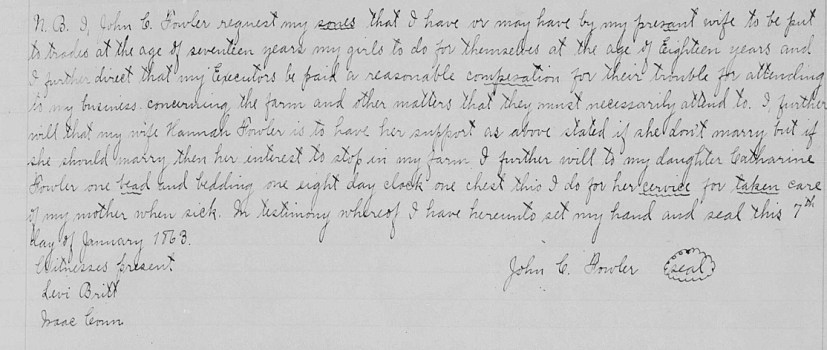 N. B. I, John C. Fowler request my sones that I have or may have by my present wife to be put
to trades at the age of seventeen years my girls to do for themselves at the age of Eighteen years and
I further direct that my Executors be paid a reasonable compesation for their trouble for attending
to my business concerning the farm and other matters that they must necessarily attend to. I, further
will that my wife Hannah Fowler is to have her support as above stated if she don't marry but if
she should marry then her interest to stop in my farm I further will to my daughter Catharine
Fowler one bead and bedding one eight day clock one chest this I do for her cervice for taken care
of my mother when sick. In testimony whereof I have hereunto set my hand and seal this 7th
day of January 1863.
Witnesses Present
John C. Fowler seal
Levi Britt
Isaac Conn